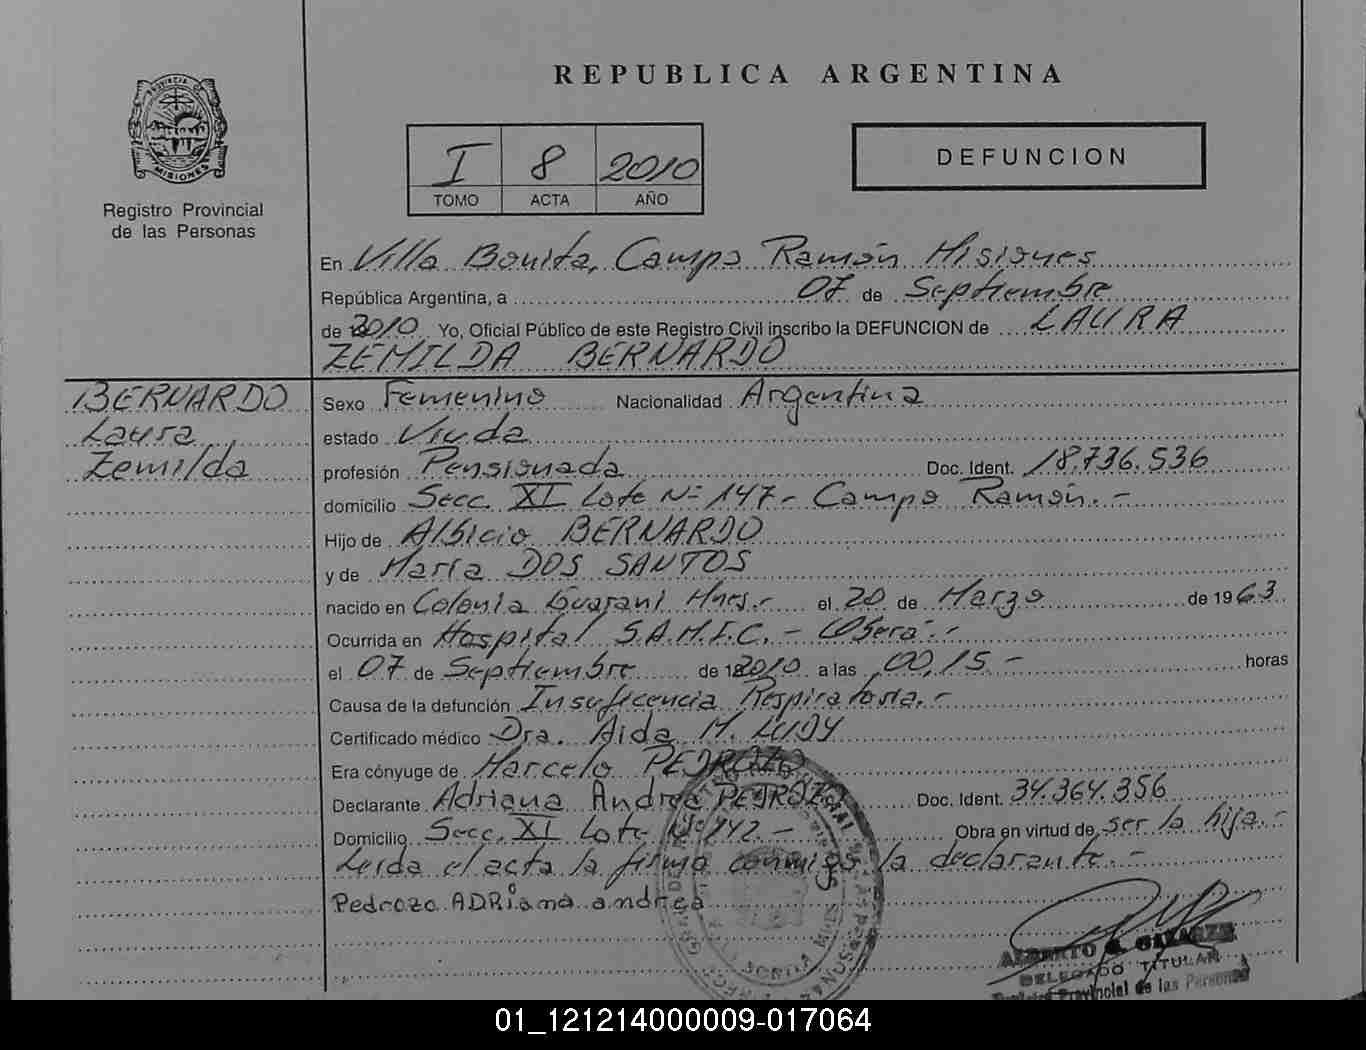 REPUBLICA ARGENTINA
PROVINCIA DE
MISIONES
Registro Provincial
de las Personas
I 8 2010
TOMO ACTA AÑO
DEFUNCION
En Villa Bonita, Campo Ramón Misiones
República Argentina, a 07 de Septiembre
de 2010 Yo, Oficial Público de este Registro Civil inscribo la DEFUNCION de LAURA
ZEMILDA BERNARDO
BERNARDO
Laura
Zemilda
Sexo Femenino Nacionalidad Argentina
estado Viuda
profesión Pensionada Doc. Ident. 18.736.536
domicilio Secc. XI Lote Nº 147.- Campo Ramón.-
Hijo de Albicio BERNARDO
y de María DOS SANTOS
nacido en Colonia Guaraní Mnes.- el 20 de Marzo de 1963
Ocurrida en Hospital S.A.M.I.C. - Oberá.-
el 07 de Septiembre de 2010 a las 00,15 - horas
Causa de la defunción Insuficencia Respiratoria.-
Certificado médico Dra. Aida M. LUDY
Era cónyuge de Marcelo PEDROZO
Declarante Adriana Andrea PEDROZO Doc. Ident. 34.364.356
Domicilio Secc. XI Lote Nº 142 - Obra en virtud de ser la hija.-
Leida el acta la firma conmigo la declarante.-
Pedrozo ADRiana andrea
ALBERTO
DELEGADO TITULAR
Provincial de las Personas
01_121214000009-017064